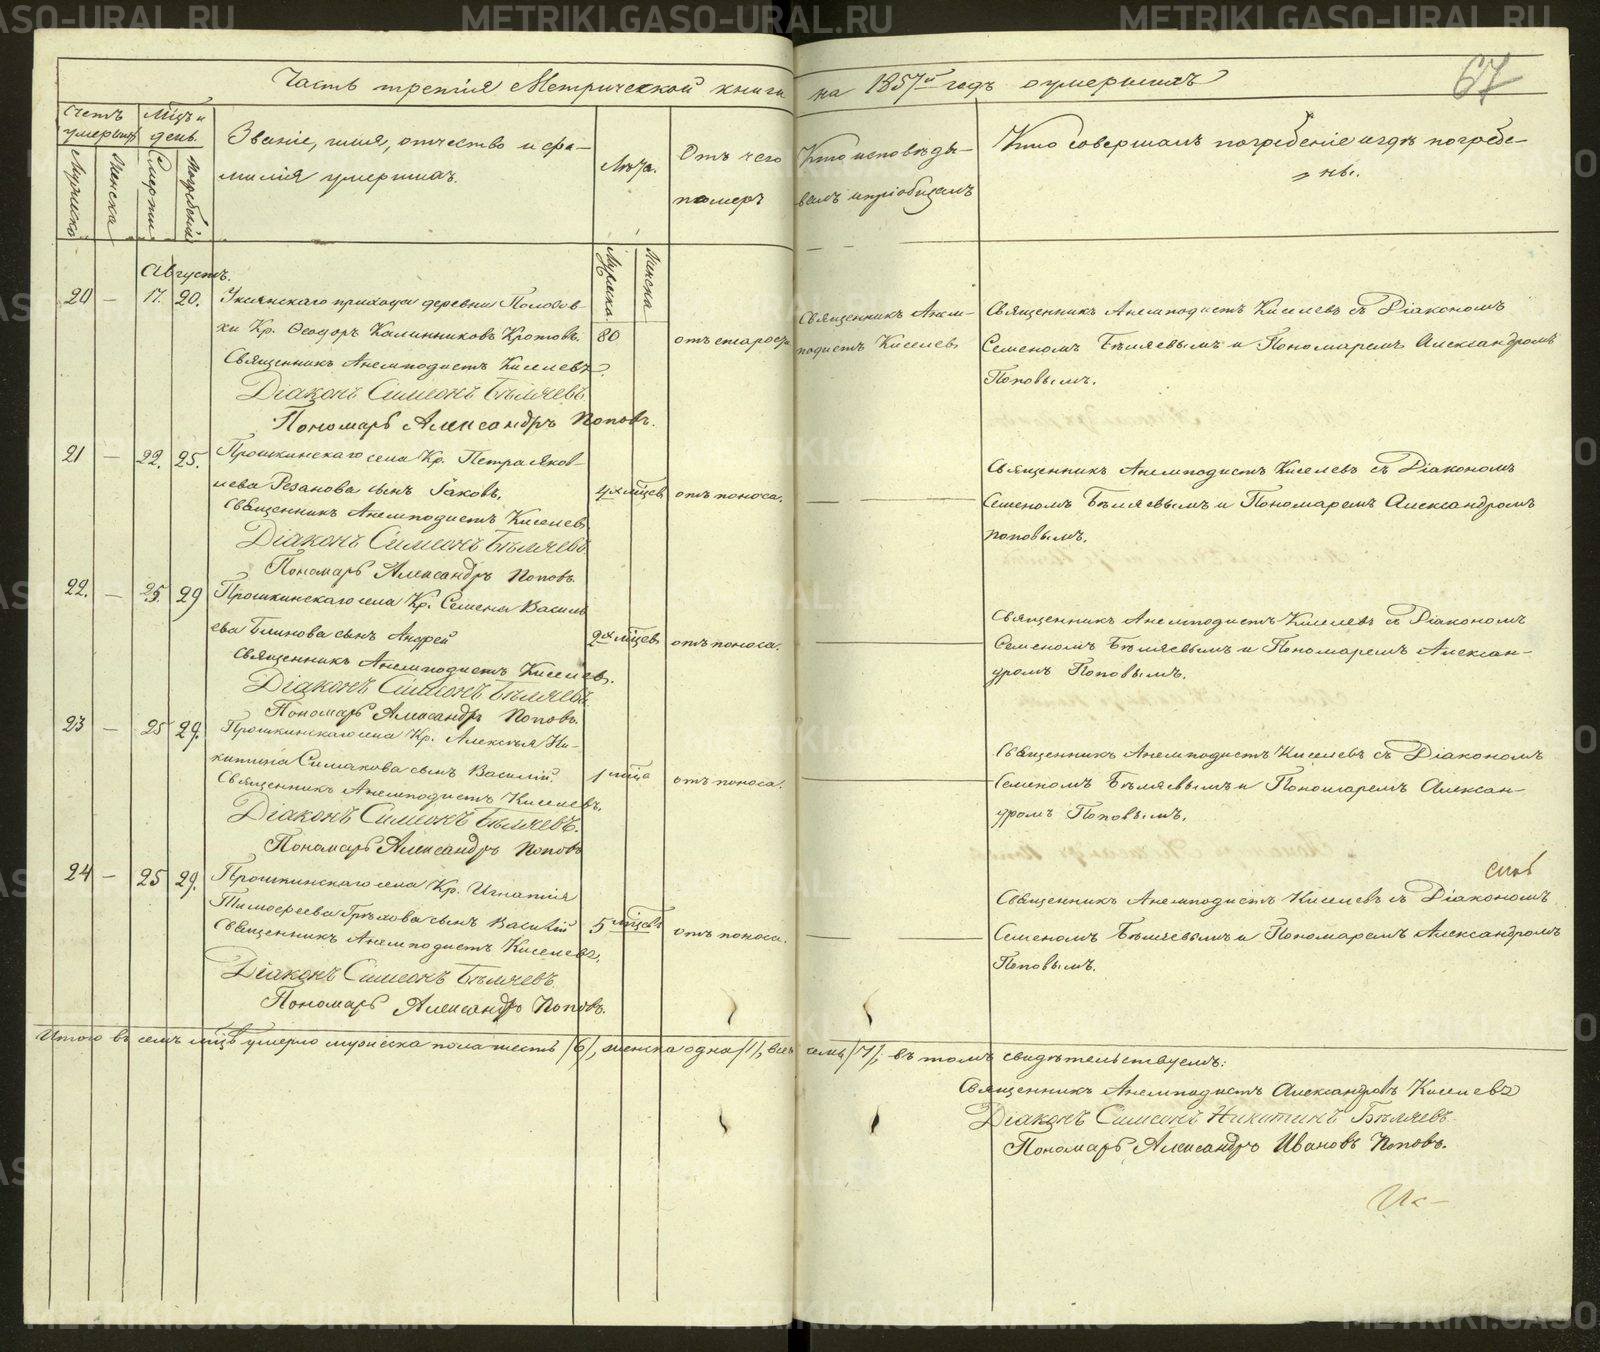 METRIKI.GASO-URAL.RU
67
Часть третія Метрической книги на 1857й годъ о умершихъ
Счетъ умершихъ
Мужеска
Женска
Мѣсяцъ и день
Смерти
Погребенія
Званіе, имя, отчество и фа-
милія умершихъ.
Лѣта.
Мужеска
Женска
Отъ чего
померъ
Кто исповѣды-
валъ и пріобщалъ
Кто совершалъ погребеніе и гдѣ погребе-
ны.
Августъ.
20 — 17. 20. прихода деревни
Кр. Ѳеодоръ Калинниковъ Кротовъ. 80 отъ старости
Священникъ Анемподистъ Киселевъ.
Діаконъ Симеонъ Бѣляевъ
Пономарь Александръ Поповъ.
Священникъ Анем-
подистъ Киселевъ
Священникъ Анемподистъ Киселевъ съ Діакономъ
Семеномъ Бѣляевымъ и Пономаремъ Александромъ
Поповымъ.
21 — 22. 25. Прошкинскаго села Кр. Петра Яков-
лева Резанова сынъ Іаковъ. 4х мѣсяцев отъ поноса. —
Священникъ Анемподистъ Киселев
Діаконъ Симеонъ Бѣляевъ
Пономарь Александръ Поповъ.
Священникъ Анемподистъ Киселевъ съ Діакономъ
Семеномъ Бѣляевымъ и Пономаремъ Александромъ
поповымъ.
22. — 25. 29 Прошкинскаго села Кр. Семена Василь
ева Блинова сынъ Андрей 2х мѣсяцев отъ поноса. —
Священникъ Анемподистъ Киселев.
Діаконъ Симеонъ Бѣляевъ.
Пономарь Александръ Поповъ.
Священникъ Анемподистъ Киселевъ съ Діакономъ
Семеномъ Бѣляевымъ и Пономаремъ Алексан-
дромъ Поповымъ.
23 — 25 29. Прошкинскаго села Кр. Алексѣя Ни-
китина Симакова сынъ Василій. 1 мѣсяца отъ поноса. —
Священникъ Анемподистъ Киселевъ.
Діаконъ Симеонъ Бѣляевъ.
Пономарь Александръ Поповъ
Священникъ Анемподистъ Киселевъ съ Діакономъ
Семеномъ Бѣляевымъ и Пономаремъ Алексан-
дромъ Поповымъ.
24 — 25 29. Прошкинскаго села Кр. Игнатія
Тимофеева сынъ Василій 5 мѣсяцевъ отъ поноса. —
Священникъ Анемподистъ Киселевъ.
Діаконъ Симеонъ Бѣляевъ
Пономарь Александръ Поповъ.
Священникъ Анемподистъ Киселевъ съ Діакономъ
Семеномъ Бѣляевымъ и Пономаремъ Александромъ
Поповымъ.
Итого въ семъ мѣсяцѣ умерло мужеска пола шесть /6/, женска одна /1/, всего семь /7/, въ томъ свидѣтельствуемъ:
Священникъ Анемподистъ Александровъ Киселевъ
Діаконъ Симеонъ Никитинъ Бѣляевъ.
Пономарь Александръ Ивановъ Поповъ.